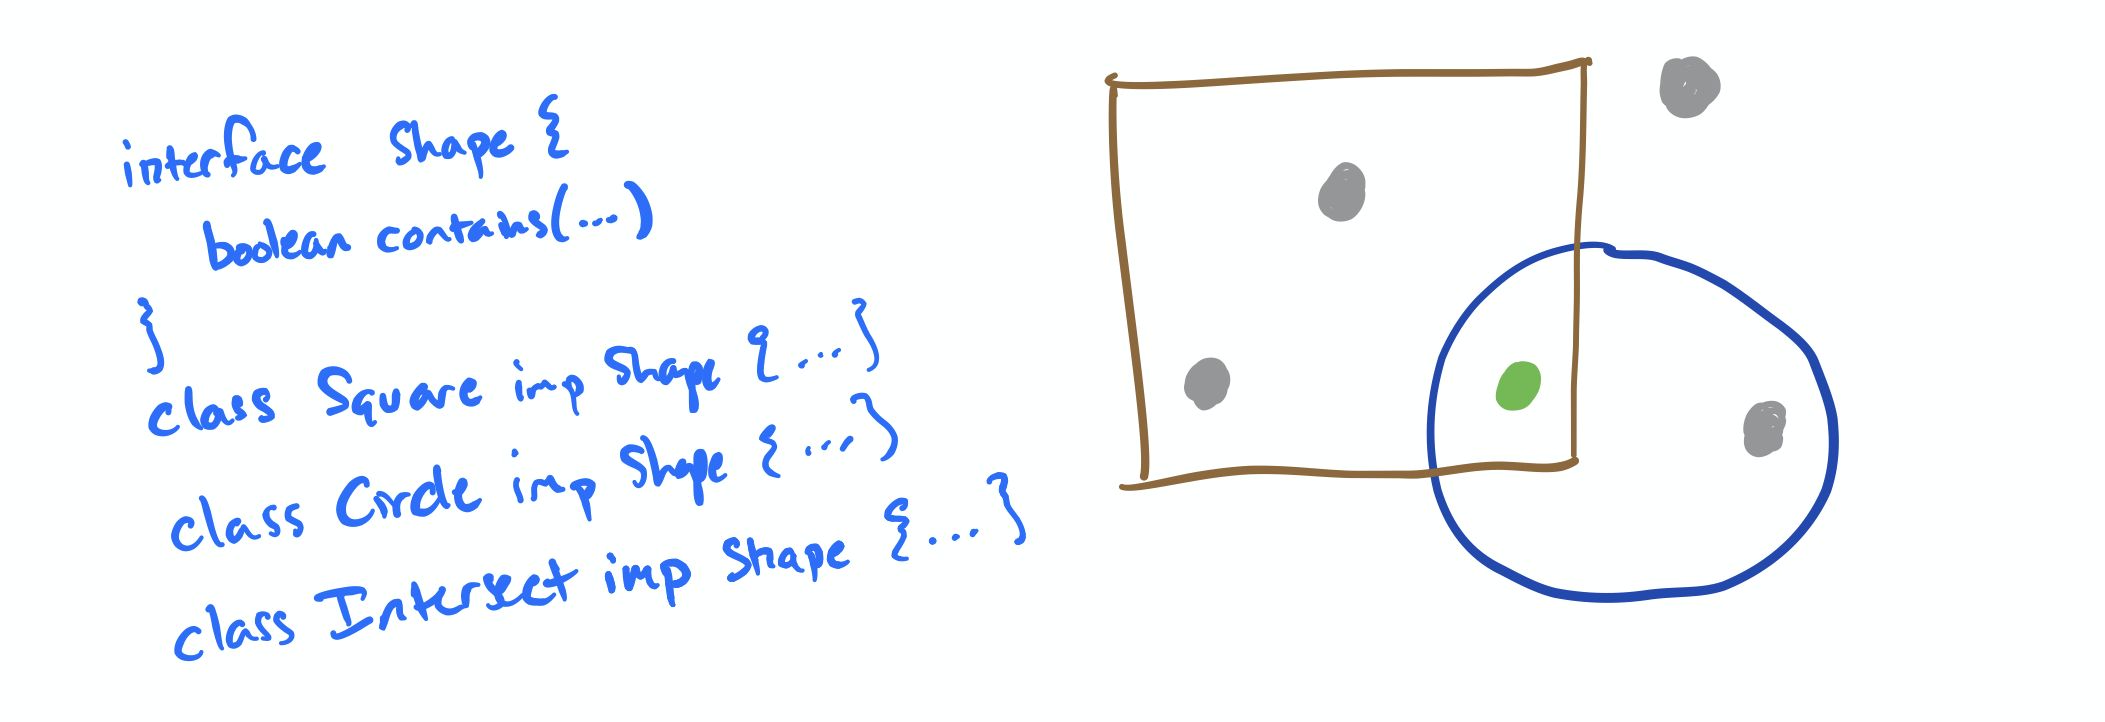 interface Shape {
boolean contains(...)
}
class Square imp Shape {...}
class Circle imp Shape {...}
class Intersect imp Shape {...}